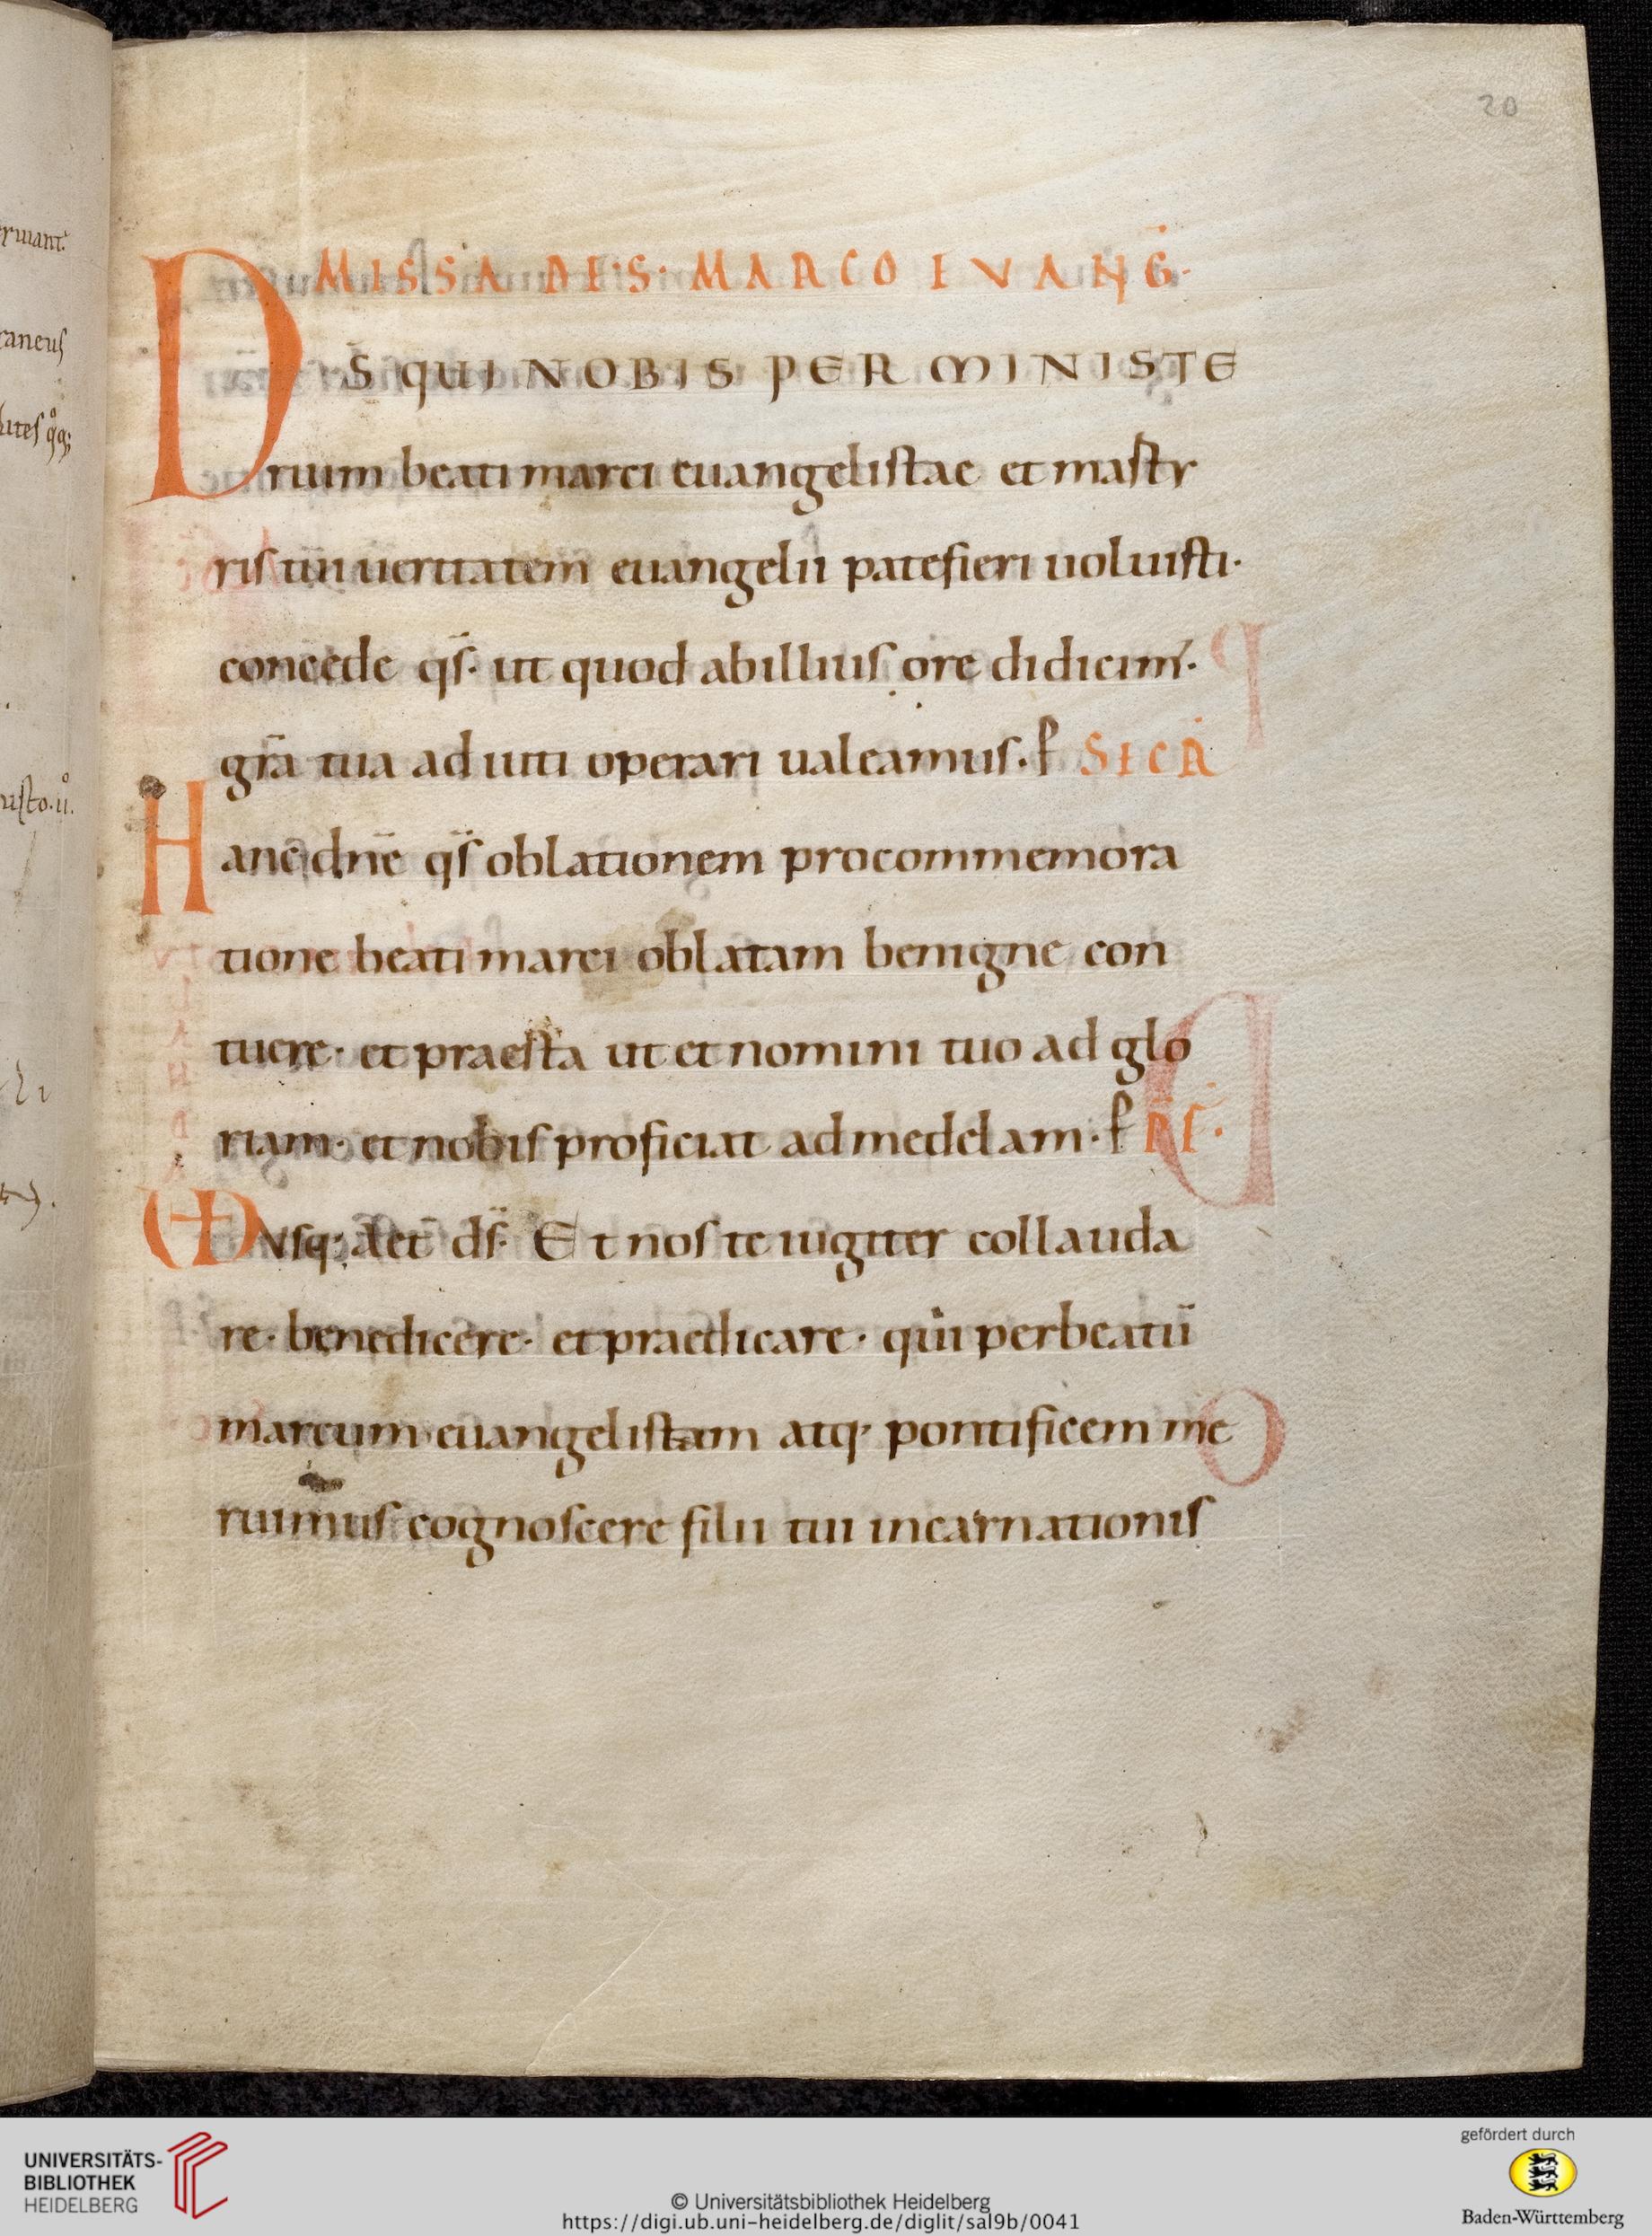 20
MISSA DE·S· MARCO EVANḠ·
DS̄ QUI NOBIS PER MINISTE
rium beati marci euangelistae et mastr
ris tui ueritatem euangelii patefieri uoluisti·
concede qs̄· ut quod ab illius ore didicim᾽·
gr̄a tua adiuti operari ualeamus· ꝑ SECR̄
Hanc dn̄e qs̄ oblationem pro commemora
tione beati marci oblatam benigne con
tuere· et praesta ut et nomini tuo ad glo
riam· et nobis proficiat ad medelam· ꝑ P̄F·
VDusq; aet̄ ds̄· Et nos te iugiter collauda
re· benedicere· et praedicare· qui per beatū
marcum euangelistam atq; pontificem me
ruimus cognoscere filii tui incarnationis
UNIVERSITÄTS-
BIBLIOTHEK
HEIDELBERG
© Universitätsbibliothek Heidelberg
https://digi.ub.uni-heidelberg.de/diglit/sal9b/0041
gefördert durch
Baden-Württemberg